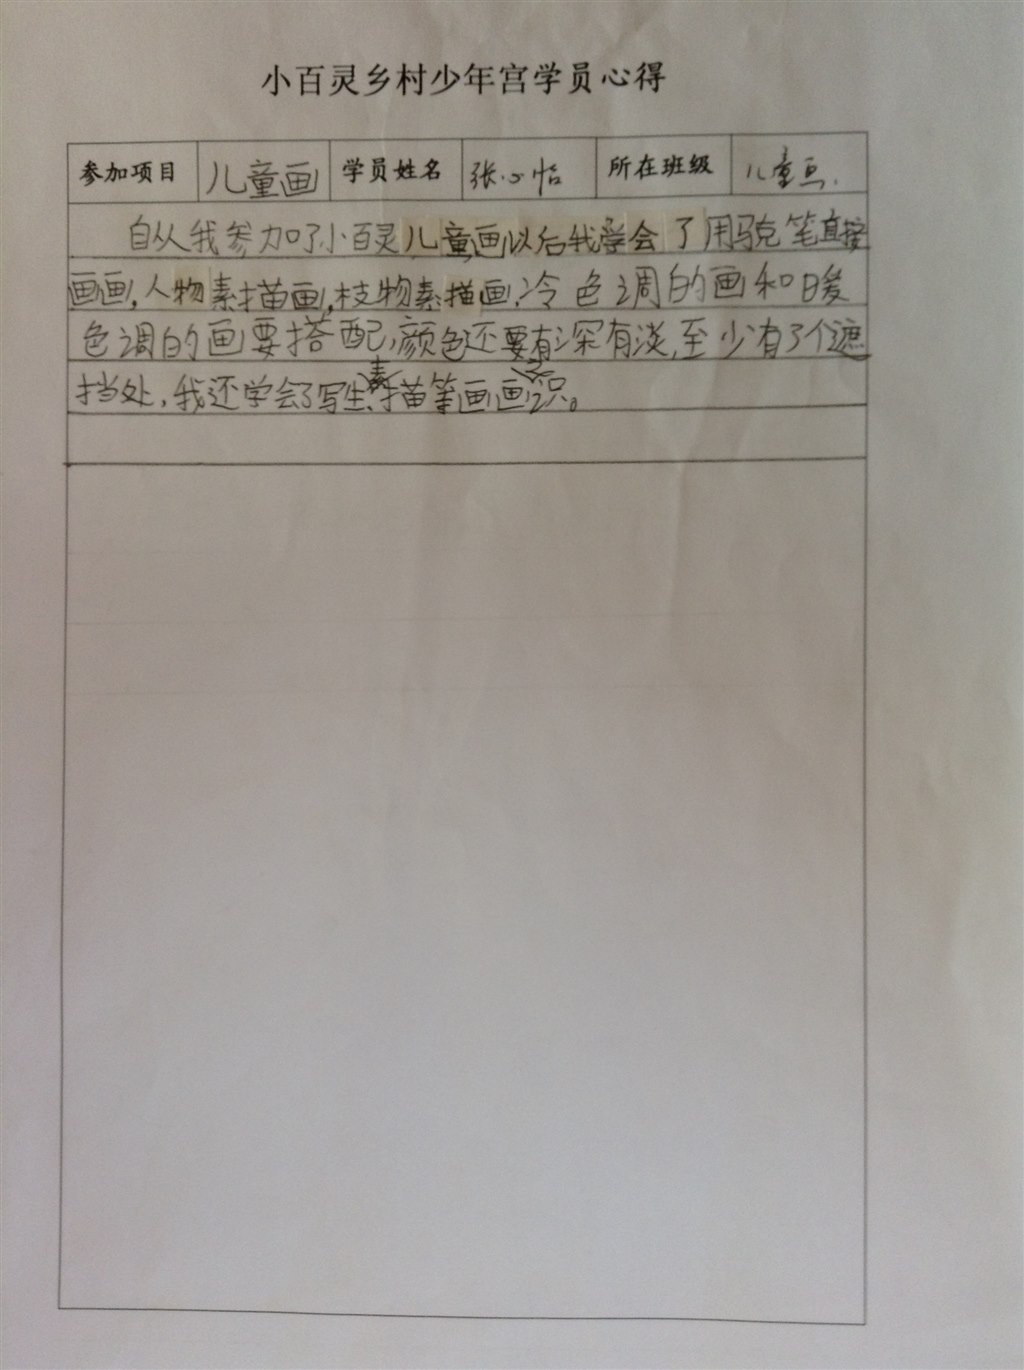 小百灵乡村少年宫学员心得
参加项目 儿童画 学员姓名 张心怡 所在班级 儿童画.
自从我参加了小百灵儿童画以后我学会了用马克笔直接
画画,人物素描画,枝物素描画,冷色调的画和暖
色调的画要搭配,颜色还要有深有淡,至少有了个遮
挡处,我还学会了写生、素描等画画识。